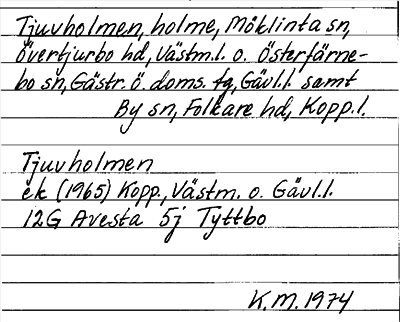 Tjuvholmen, holme, Möklinta sn,
övertjurbo hd, Västm.l. o. Österfärne-
bo sn, Gästr. ö. doms. fg, Gävl.l. samt
By sn, Folkare hd, Kopp.l.
Tjuvholmen
ek (1965) Kopp., Västm. o. Gävl.l.
12G Avesta 5j Tyttbo
K.M. 1974